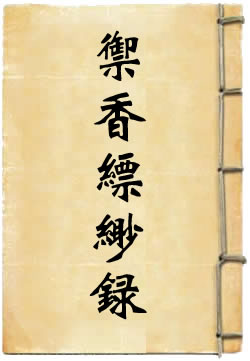 禦香縹緲録